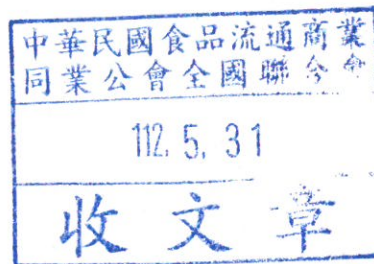 中華民國食品流通商業
同業公會全國聯合會
112. 5. 31
收文章